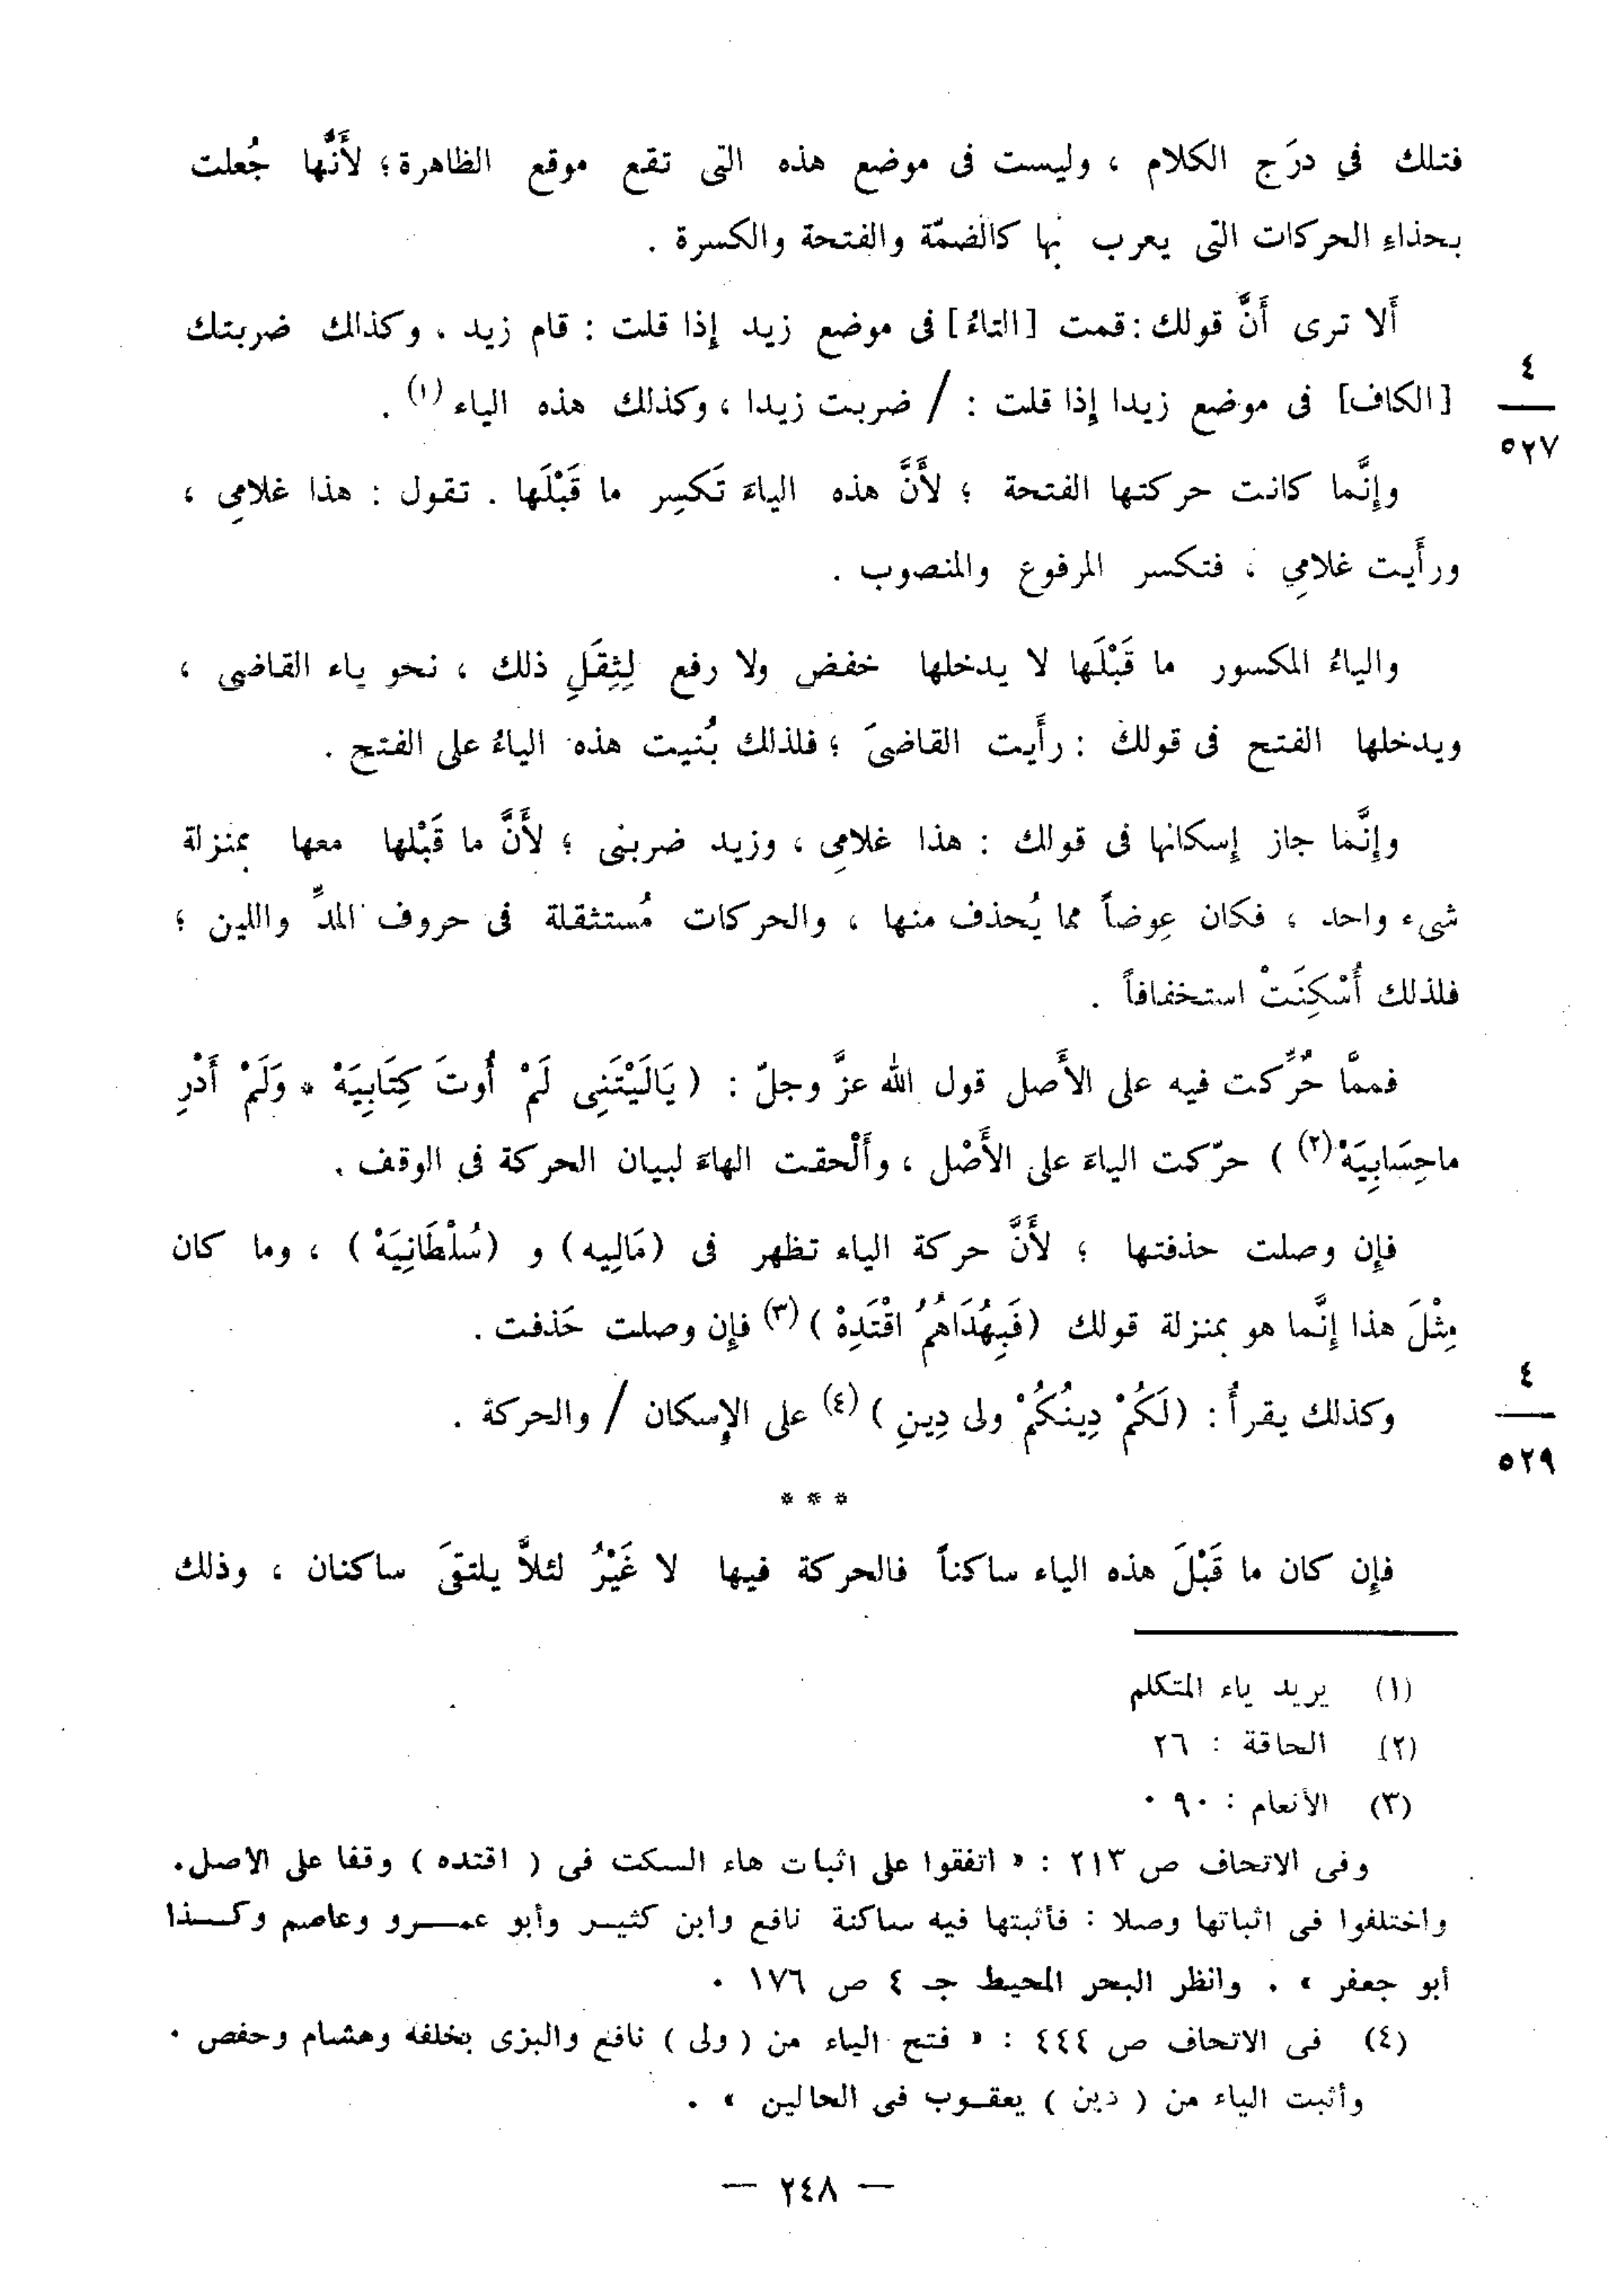 فتلك في درَج الكلام ، وليست فى موضع هذه التى تقع موقع الظاهرة ؛ لأَنَّها جُعلت
بحذاءِ الحركات التى يعرب بها كالضمّة والفتحة والكسرة .
أَلا ترى أَنَّ قولك : قمت [التاءُ] فى موضع زيد إِذا قلت : قام زيد . وكذلك ضربتك
[الكاف] فى موضع زيدا إِذا قلت : / ضربت زيدا ، وكذلك هذه الياء (١) .
٤
٥٢٧
وإِنَّما كانت حركتها الفتحة ؛ لأَنَّ هذه الياءَ تَكسِر ما قَبْلَها . تقول : هذا غلامِى ،
ورأَيت غلامِي ، فتكسر المرفوع والمنصوب .
والياءُ المكسور ما قَبْلَها لا يدخلها خفض ولا رفع لِثِقَلِ ذلك ، نحو ياء القاضى ،
ويدخلها الفتح فى قولك : رأَيت القاضىَ ؛ فلذلك بُنيت هذه الياءُ على الفتح .
وإِنَّما جاز إِسكانها فى قولك : هذا غلامِى ، وزيد ضربنى ؛ لأَنَّ ما قَبْلها معها بمنزلة
شىء واحد ، فكان عِوضاً مما يُحذف منها ، والحركات مُستثقلة فى حروف المدِّ واللين ؛
فلذلك أُسْكِنَتْ استخفافاً .
فممَّا حُرِّكت فيه على الأَصل قول الله عزَّ وجلّ : ( يَالَيْتَنِى لَمْ أُوتَ كِتَابِيَهْ * وَلَمْ أَدْرِ
ماحِسَابِيَهْ (٢) ) حرّكت الياءَ على الأَصْل ، وأَلْحقت الهاءَ لبيان الحركة فى الوقف .
فإِن وصلت حذفتها ؛ لأَنَّ حركة الياء تظهر فى (مَالِيه) و (سُلْطَانِيَهْ ) ، وما كان
مِثْلَ هذا إِنَّما هو بمنزلة قولك (فَبِهُدَاهُمُ اقْتَدِهْ ) (٣) فإِن وصلت حَذفت .
وكذلك يقرأُ : (لَكُمْ دِينُكُمْ ولى دِينِ ) (٤) على الإِسكان / والحركة .
٤
٥٢٩
* * *
فإِن كان ما قَبْلَ هذه الياء ساكناً فالحركة فيها لا غَيْرُ لئلاَّ يلتقىَ ساكنان ، وذلك
(١) يريد ياء المتكلم
(٢) الحاقة : ٢٦
(٣) الأنعام : ٩٠ .
وفى الاتحاف ص ٢١٣ : « اتفقوا على اثبات هاء السكت فى ( اقتده ) وقفا على الاصل.
واختلفوا فى اثباتها وصلا : فأثبتها فيه ساكنة نافع وابن كثير وأبو عمرو وعاصم وكذا
أبو جعفر » . وانظر البحر المحيط جـ ٤ ص ١٧٦ .
(٤) فى الاتحاف ص ٤٤٤ : « فتح الياء من ( ولى ) نافع والبزى بخلفه وهشام وحفص .
وأثبت الياء من ( دين ) يعقوب فى الحالين » .
— ٢٤٨ —